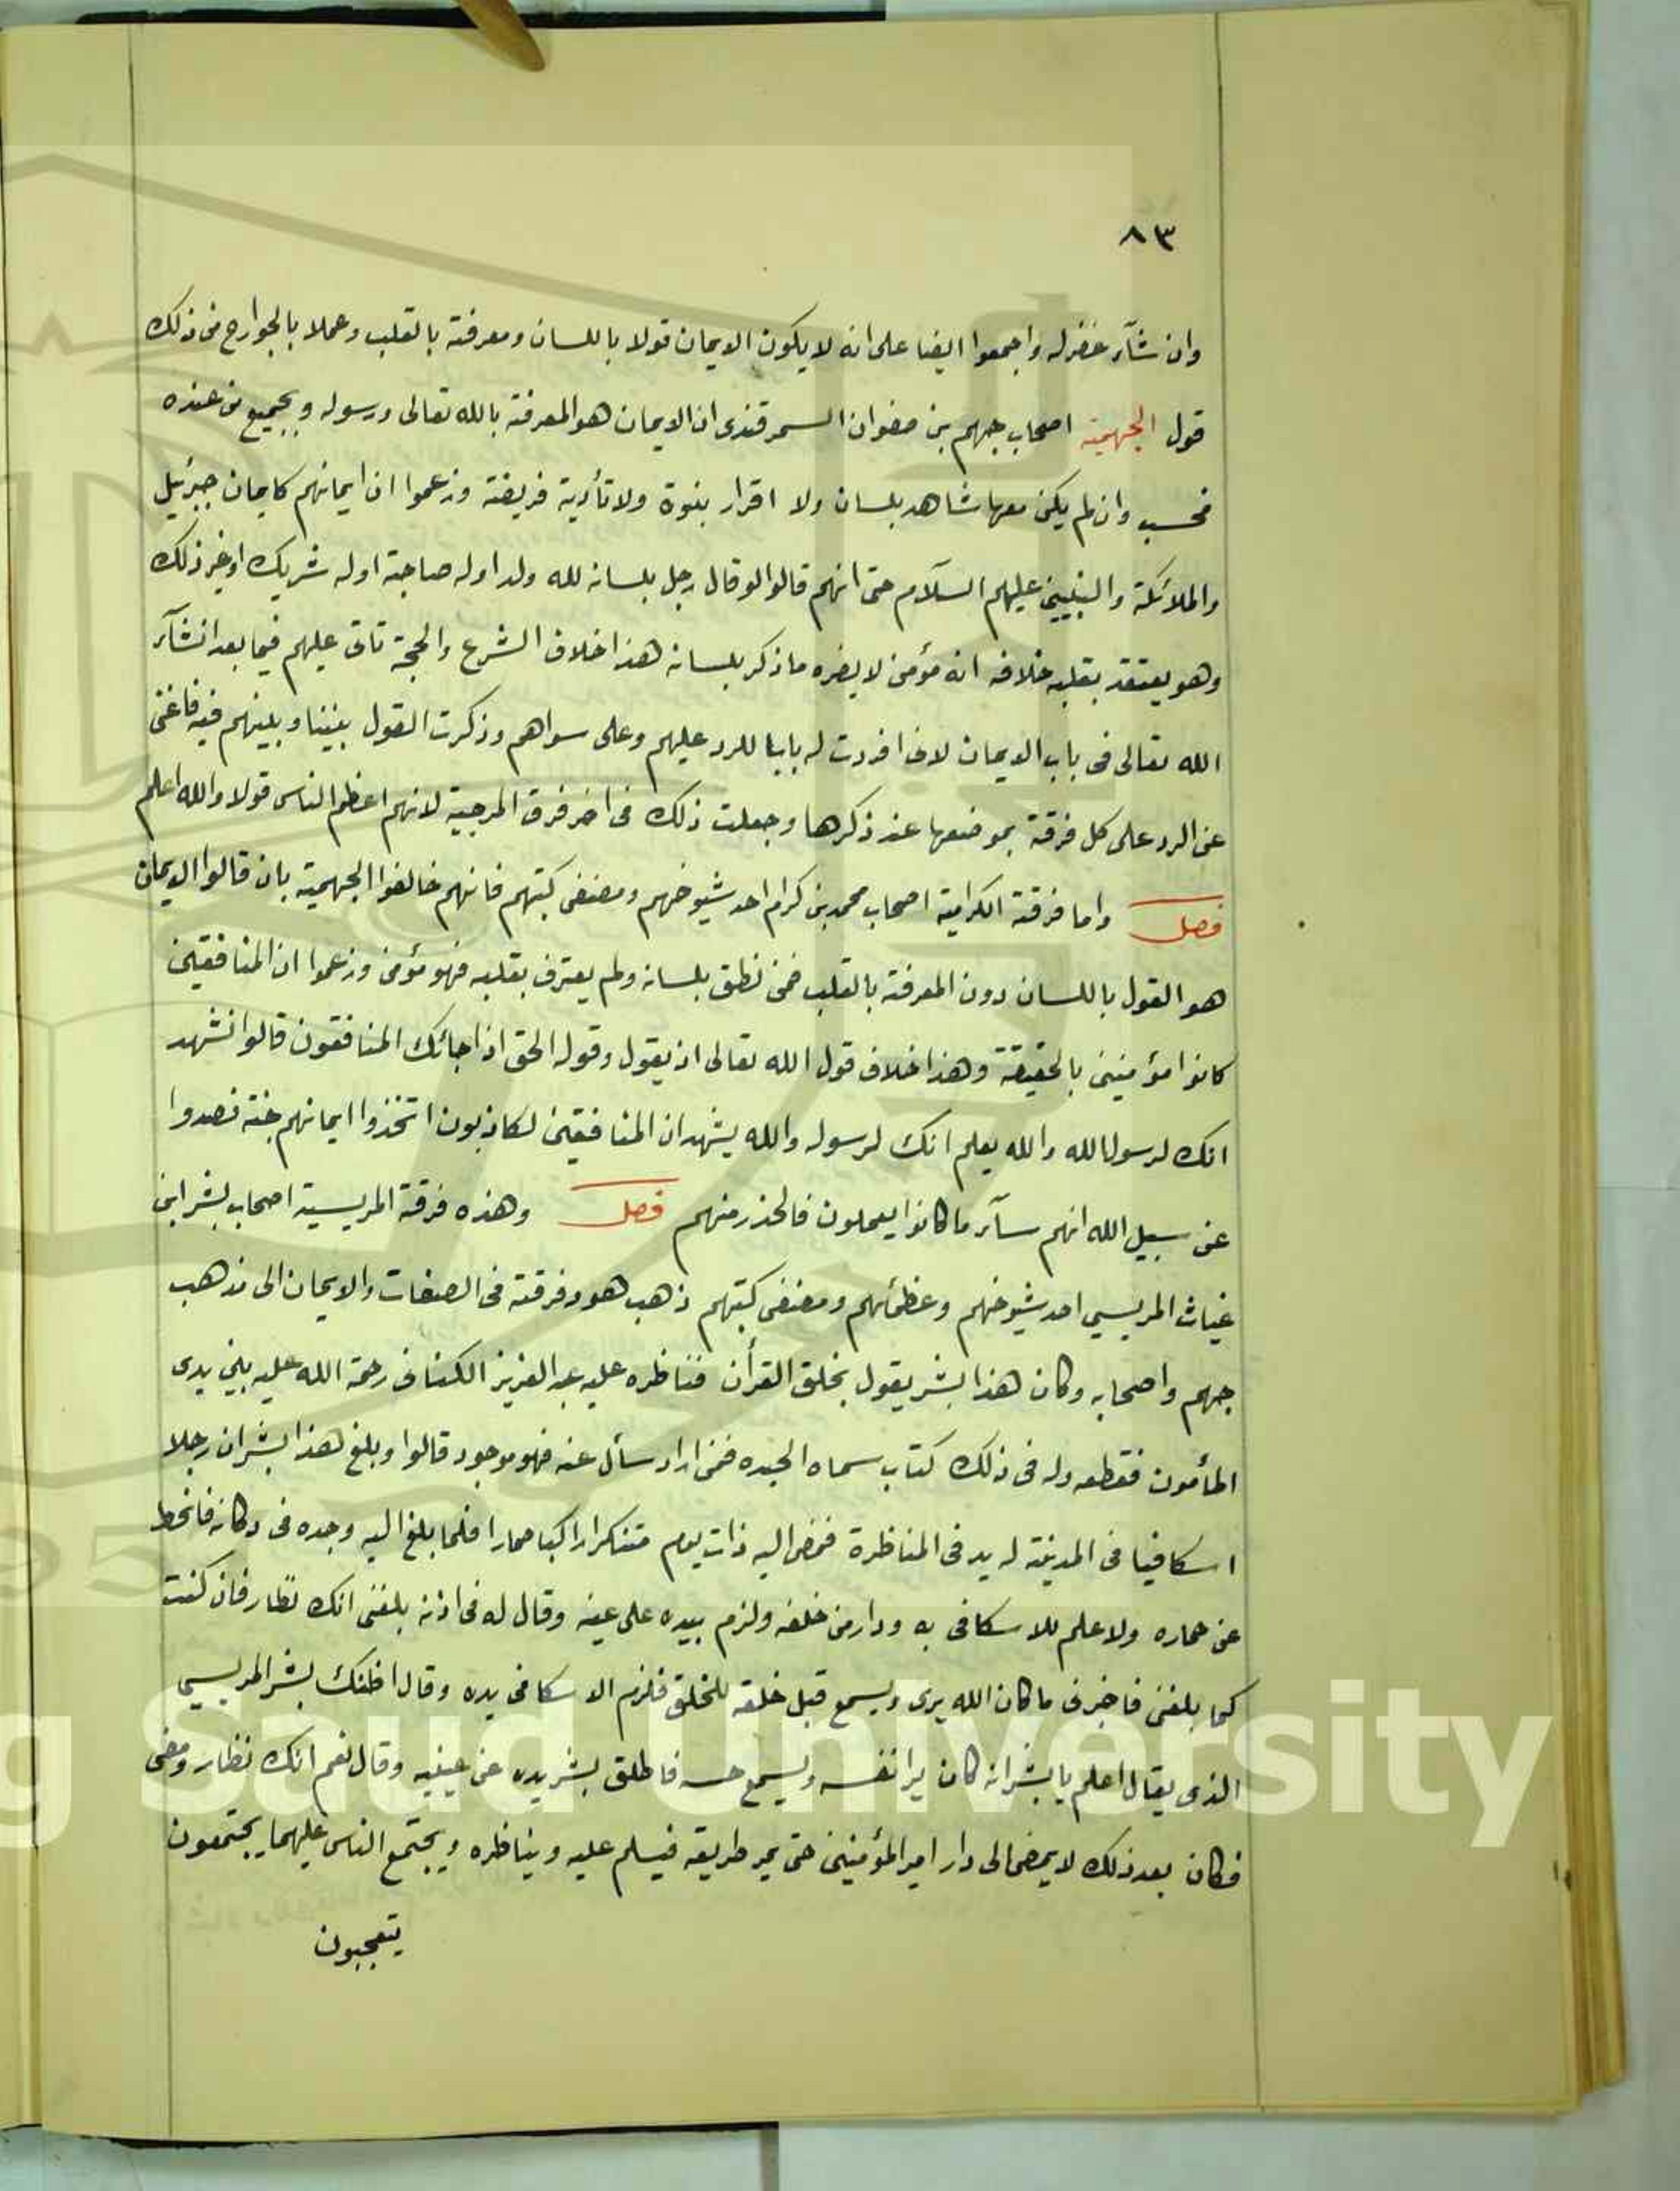 ٨٣
وان شآء غفر له واجمعوا ايضا على انه لا يكون الايمان قولا باللسان ومعرفة بالقلب وعملا بالجوارح فمن ذلك
قول الجهمية اصحاب جهم بن صفوان السمرقندى ان الايمان هو المعرفة بالله تعالى ورسوله وبجميع من عنده
فحسب وان لم يكن معها شاهد بلسان ولا اقرار بنبوة ولا تأدية فريضة وزعموا ان ايمانهم كايمان جبرئيل
والملائكة والنبيين عليهم السلآم حتى انهم قالوا لو قال رجل بلسانه لله ولد او له صاحبة او له شريك او غير ذلك
وهو يعتقد بقلبه خلافه انه مؤمن لا يضره ما ذكر بلسانه هذا خلاف الشرع والحجة تاتى عليهم فيما بعد انشآء
الله تعالى فى باب الايمان لانى افردت له بابا للرد عليهم وعلى سواهم وذكرت القول بيننا وبينهم فيه فاغنى
عن الرد على كل فرقة بموضعها عند ذكرها وجعلت ذلك فى اخر فرق المرجية لانهم اعظم الناس قولا والله اعلم
فصل واما فرقة الكرامية اصحاب محمد بن كرام احد شيوخهم ومصنفى كتبهم فانهم خالفوا الجهمية بان قالوا الايمان
هو القول باللسان دون المعرفة بالقلب فمن نطق بلسانه ولم يعترف بقلبه فهو مؤمن وزعموا ان المنافقين
كانوا مؤمنين بالحقيقة وهذا خلاف قول الله تعالى اذ يقول وقوله الحق اذا جائك المنافقون قالوا نشهد
انك لرسول الله والله يعلم انك لرسوله والله يشهد ان المنافقين لكاذبون اتخذوا ايمانهم جنة فصدوا
عن سبيل الله انهم سآء ما كانوا يعملون فالحذر منهم فصل وهذه فرقة المريسية اصحاب بشر ابن
غياث المريسي احد شيوخهم وعظمائهم ومصنفى كتبهم ذهب هو وفرقته فى الصفات والايمان الى مذهب
جهم واصحابه وكان هذا بشر يقول بخلق القرأن فناظره عليه عبد العزيز الكنانى رحمة الله عليه بين يدى
المأمون فقطعه وله فى ذلك كتاب سماه الحيده فمن اراد سأل عنه فهو موجود قالوا وبلغ هذا بشر ان رجلا
اسكافيا فى المدينة له يد فى المناظرة فمضى اليه ذات يوم متنكرا راكبا حمارا فلما بلغ اليه وجده فى دكانه فانحط
عن حماره ولا علم للاسكافى به ودار من خلفه ولزم بيده على عينه وقال له فى اذنه بلغنى انك نظار فان كنت
كما بلغنى فاخبرنى ما كان الله يرى ويسمع قبل خلقه للخلق فلزم الاسكافى يده وقال اظنك بشر المريسي
الذى يقال اعلم يا بشر انه كان يرا نفسه ويسمع حسه فاطلق بشر يده عن عينيه وقال نعم انك نظار ومضى
فكان بعد ذلك لا يمضى الى دار امير المؤمنين حتى يمر طريقه فيسلم عليه ويناظره ويجتمع الناس عليهما يجتمعون
يتعجبون
King Saud University